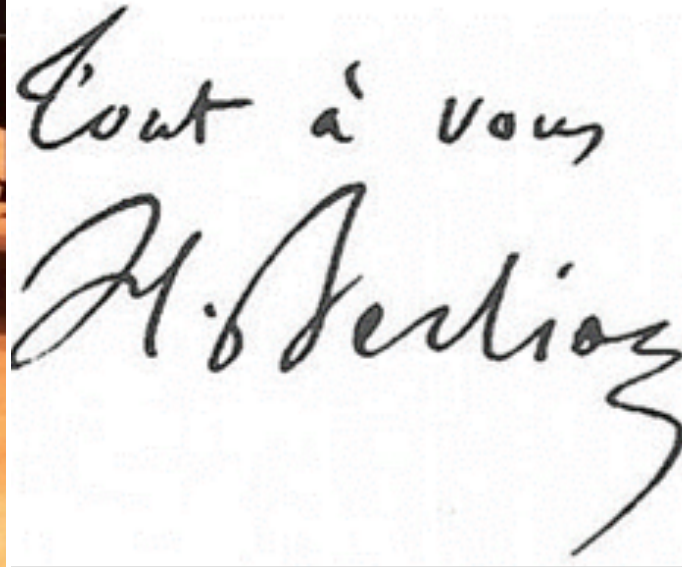 Tout à vous
H. Berlioz